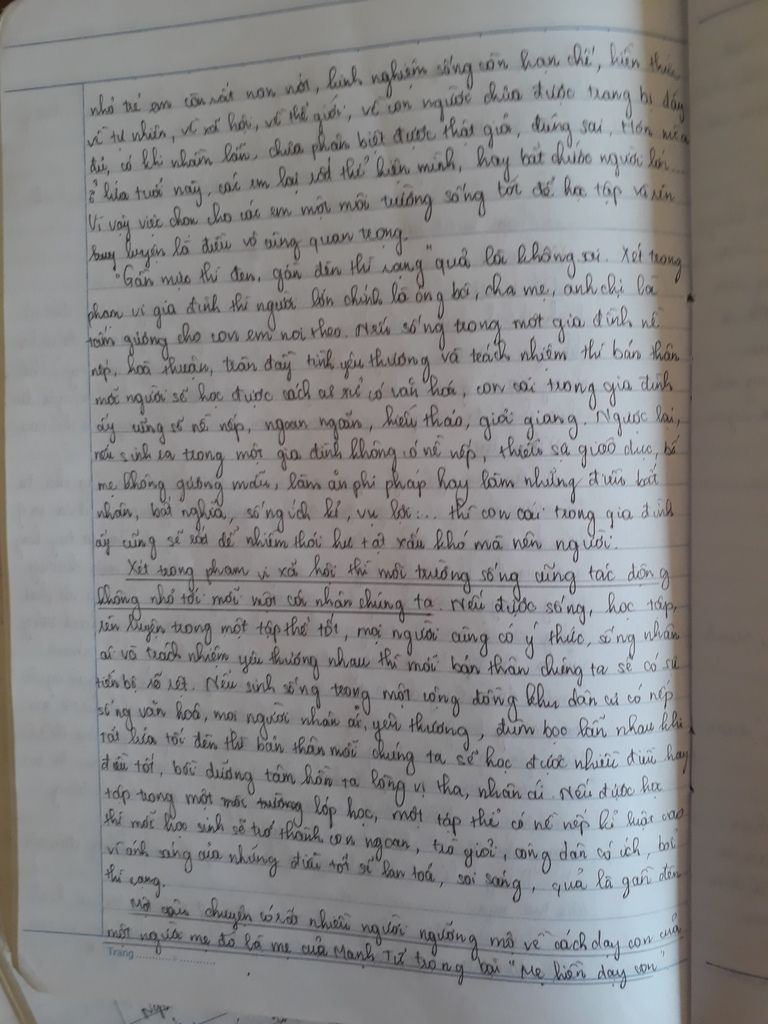 nhỏ trẻ em còn rất non nớt, kinh nghiệm sống còn hạn chế, kiến thức
về tự nhiên, về xã hội, về thế giới, về con người chưa được trang bị đầy
đủ, có khi nhầm lẫn, chưa phân biệt được thật giả, đúng sai, Hơn nữa
ở lứa tuổi này, các em lại rất thể hiện mình, hay bắt chước người lớn...
Vì vậy việc chọn cho các em một môi trường sống tốt để học tập và rèn
luyện là điều vô cùng quan trọng.
"Gần mực thì đen, gần đèn thì rạng" quả là không sai. Xét trong
phạm vi gia đình thì người lớn chính là ông bà, cha mẹ, anh chị là
tấm gương cho con em noi theo. Nếu sống trong một gia đình nề
nếp, hoà thuận, tràn đầy tình yêu thương và trách nhiệm thì bản thân
mỗi người sẽ học được cách cư xử có văn hoá, con cái trong gia đình
ấy cũng sẽ nề nếp, ngoan ngoãn, hiếu thảo, giỏi giang. Ngược lại,
nếu sinh ra trong một gia đình không có nề nếp, thiếu sự giáo dục, bố
mẹ không gương mẫu, làm ăn phi pháp hay làm những điều bất
nhân, bất nghĩa, sống ích kỉ, vụ lợi... thì con cái trong gia đình
ấy cũng sẽ rất dễ nhiễm thói hư tật xấu khó mà nên người.
Xét trong phạm vi xã hội thì môi trường sống cũng tác động
không nhỏ tới mỗi một cá nhân chúng ta. Nếu được sống, học tập,
rèn luyện trong một tập thể tốt, mọi người cùng có ý thức, sống nhân
ái và trách nhiệm yêu thương nhau thì mỗi bản thân chúng ta sẽ có sự
tiến bộ rõ rệt. Nếu sinh sống trong một cộng đồng khu dân cư có nếp
sống văn hoá, mọi người nhân ái, yêu thương, đùm bọc lẫn nhau khi
tối lửa tắt đèn thì bản thân mỗi chúng ta sẽ học được nhiều điều hay
điều tốt, bồi dưỡng tâm hồn ta lòng vị tha, nhân ái. Nếu được học
tập trong một môi trường lớp học, một tập thể có nề nếp kỉ luật cao
thì mỗi học sinh sẽ trở thành con ngoan, trò giỏi, công dân có ích, bởi
vì ánh sáng của những điều tốt sẽ lan toả, soi sáng, quả là gần đèn
thì rạng.
Một câu chuyện có rất nhiều người ngưỡng mộ về cách dạy con của
một người mẹ đó là mẹ của Mạnh Tử trong bài "Mẹ hiền dạy con"
Trang